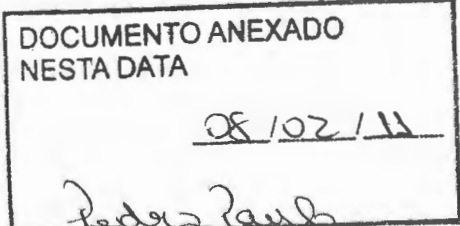 DOCUMENTO ANEXADO
NESTA DATA
08/02/11
Pedro Paulo